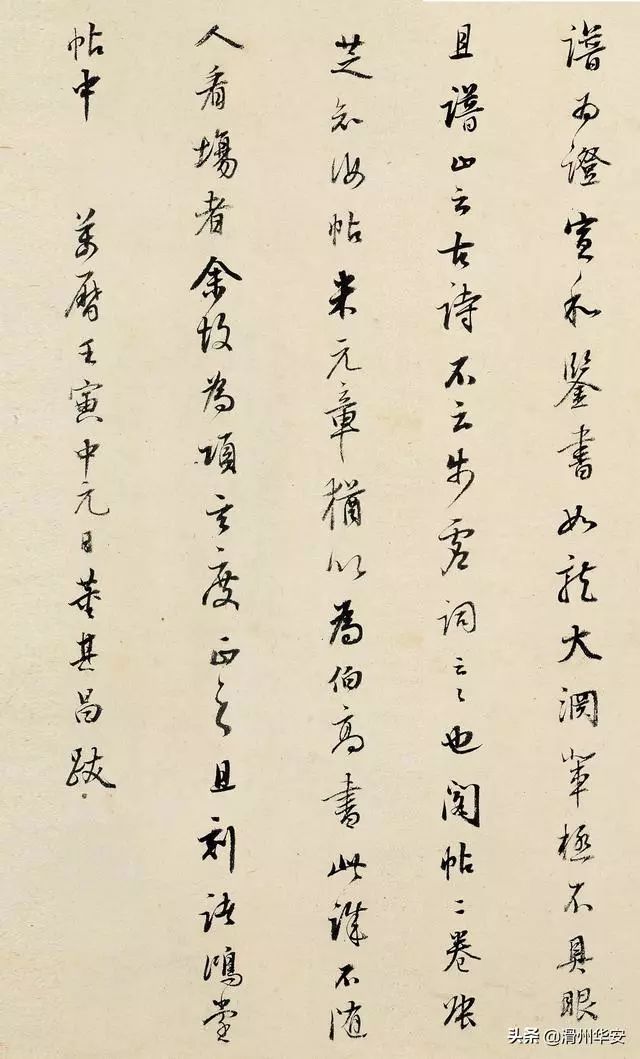 譜為證宣和鑒書如龍大淵輩極不具眼
且譜止云古詩不云步虛詞云云也閣帖二卷張
芝知汝帖米元章猶以為伯高書此誰不隨
人看場者余故為項玄度正之且刻諸鴻堂
帖中 萬曆壬寅中元日董其昌跋
头条@滑州华安